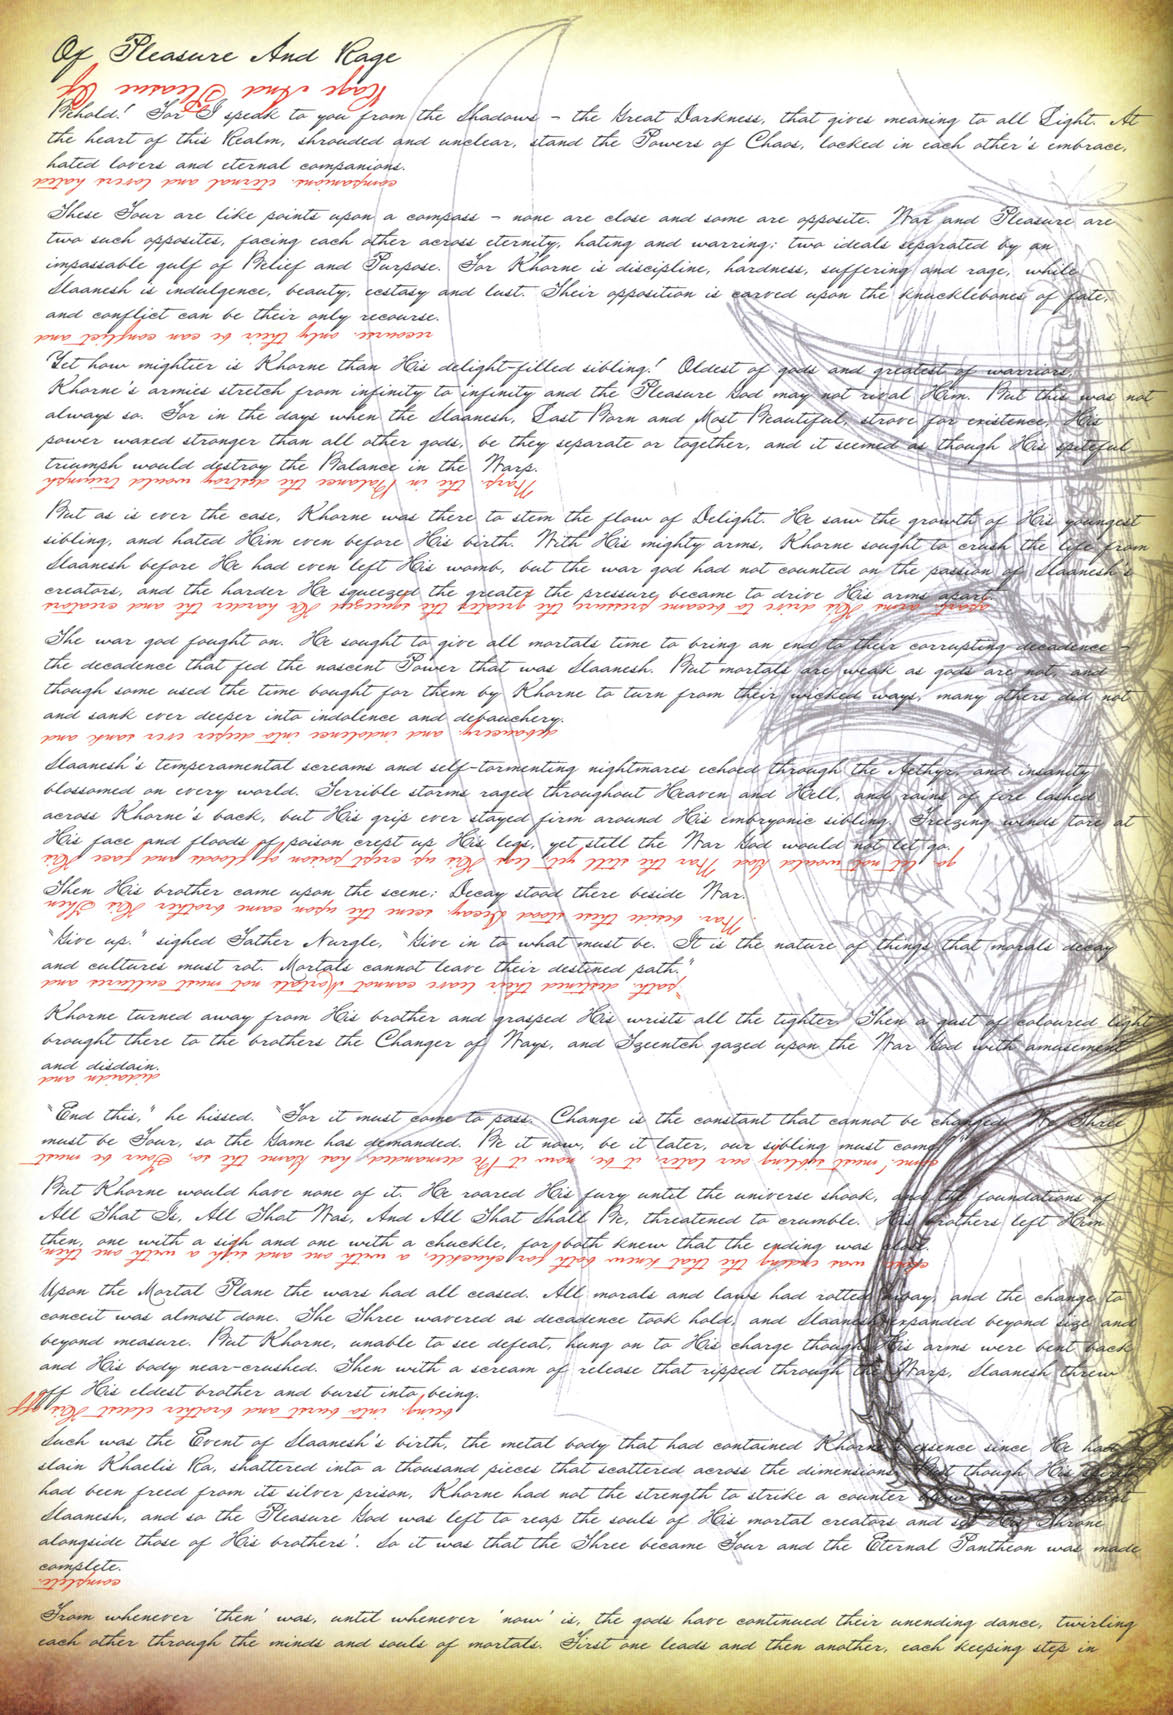 Of Pleasure And Rage
Rage And Pleasue Of
Behold! For I speak to you from the Shadows – the Great Darkness, that gives meaning to all Light. At
the heart of this Realm, shrouded and unclear, stand the Powers of Chaos, locked in each other's embrace,
hated lovers and eternal companions.
companions. eternal and lovers hated
These Four are like points upon a compass – none are close and some are opposite. War and Pleasure are
two such opposites, facing each other across eternity, hating and warring; two ideals separated by an
impassable gulf of Belief and Purpose. For Khorne is discipline, hardness, suffering and rage, while
Slaanesh is indulgence, beauty, ecstasy and lust. Their opposition is carved upon the knucklebones of fate,
and conflict can be their only recourse.
recourse. only their be can conflict and
Yet how mightier is Khorne than His delight-filled sibling! Oldest of gods and greatest of warriors,
Khorne's armies stretch from infinity to infinity and the Pleasure God may not rival Him. But this was not
always so. For in the days when the Slaanesh, Last Born and Most Beautiful, strove for existence, His
power waxed stronger than all other gods, be they separate or together, and it seemed as though His spiteful
triumph would destroy the Balance in the Warp.
Warp. the in Balance the destroy would triumph
But as is ever the case, Khorne was there to stem the flow of Delight. He saw the growth of His youngest
sibling, and hated Him even before His birth. With His mighty arms, Khorne sought to crush the life from
Slaanesh before He had even left His womb, but the war god had not counted on the passion of Slaanesh's
creators, and the harder He squeezed the greater the pressure became to drive His arms apart.
apart. arms His drive to became pressure the greater the squeezed He harder the and creators
The war god fought on. He sought to give all mortals time to bring an end to their corrupting decadence –
the decadence that fed the nascent Power that was Slaanesh. But mortals are weak as gods are not, and
though some used the time bought for them by Khorne to turn from their wicked ways, many others did not
and sank ever deeper into indolence and debauchery.
debauchery. and indolence into deeper ever sank and
Slaanesh's temperamental screams and self-tormenting nightmares echoed through the Aethyr, and insanity
blossomed on every world. Terrible storms raged throughout Heaven and Hell, and rains of fire lashed
across Khorne's back, but His grip ever stayed firm around His embryonic sibling. Freezing winds tore at
His face and floods of poison crept up His legs, yet still the War God would not let go.
go. let not would God War the still yet legs, His up crept poison of floods and face His
Then His brother came upon the scene; Decay stood there beside War.
War. beside there stood Decay scene; the upon came brother His Then
"Give up." sighed Father Nurgle, "Give in to what must be. It is the nature of things that morals decay
and cultures must rot. Mortals cannot leave their destined path."
path." destined their leave cannot Mortals rot. must cultures and
Khorne turned away from His brother and grasped His wrists all the tighter. Then a gust of coloured light
brought there to the brothers the Changer of Ways, and Tzeentch gazed upon the War God with amusement
and disdain.
disdain. and
"End this," he hissed. "For it must come to pass. Change is the constant that cannot be changed. We Three
must be Four, so the Game has demanded. Be it now, be it later, our sibling must come!"
come!" must sibling our later, it be, now, it Be demanded. has Game the so, Four be must
But Khorne would have none of it. He roared His fury until the universe shook, and the foundations of
All That Is, All That Was, And All That Shall Be, threatened to crumble. His brothers left Him
then, one with a sigh and one with a chuckle, for both knew that the ending was close.
close. was ending the that knew both for chuckle, a with one and sigh a with one then,
Upon the Mortal Plane the wars had all ceased. All morals and laws had rotted away, and the change to
conceit was almost done. The Three wavered as decadence took hold, and Slaanesh expanded beyond size and
beyond measure. But Khorne, unable to see defeat, hung on to His charge though His arms were bent back
and His body near-crushed. Then with a scream of release that ripped through the Warp, Slaanesh threw
off His eldest brother and burst into being.
being. into burst and brother eldest His off
Such was the Event of Slaanesh's birth, the metal body that had contained Khorne's essence since He had
slain Khaelis Ra, shattered into a thousand pieces that scattered across the dimensions. But though His spirit
had been freed from its silver prison, Khorne had not the strength to strike a counter blow against
Slaanesh, and so the Pleasure God was left to reap the souls of His mortal creators and set His Throne
alongside those of His brothers'. So it was that the Three became Four and the Eternal Pantheon was made
complete.
complete.
From whenever 'then' was, until whenever 'now' is, the gods have continued their unending dance, twirling
each other through the minds and souls of mortals. First one leads and then another, each keeping step in